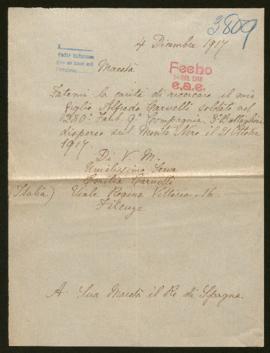 3809
4 Dicembre 1917
Fecho
e.a.e.
Maestà
Fatemi la carità di ricercare il mio
figlio Alfredo Carnelli soldato nel
280° Fant. 9ª Compagnia 3° Battaglione
disperso sul Monte Nero il 24 Ottobre
1917.
Di V. M.
Umilissima Serva
Emilia Carnelli
(Italia) Viale Regina Vittoria
Firenze
A Sua Maestà il Re di Spagna.